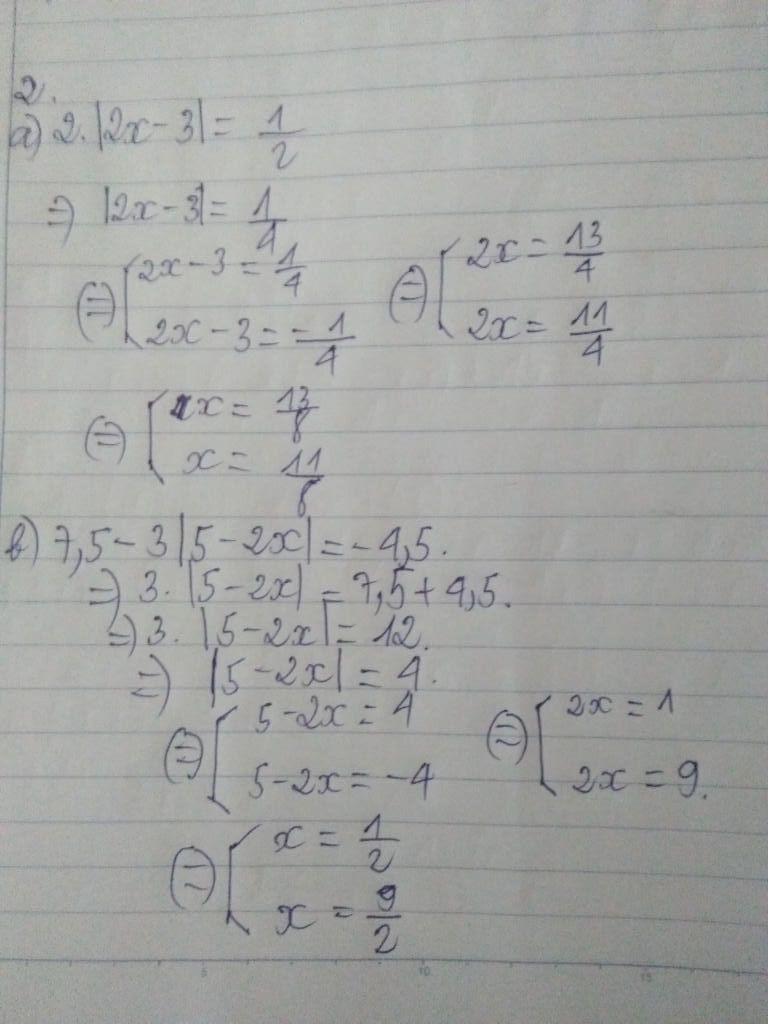 2.
a) 2.|2x-3| = 1/2
=) |2x-3| = 1/4
(=) [ 2x-3 = 1/4 (=) [ 2x = 13/4
2x-3 = -1/4 2x = 11/4
(=) [ x = 13/8
x = 11/8
b) 7,5-3|5-2x| = -4,5.
=) 3. |5-2x| = 7,5+4,5.
=) 3. |5-2x| = 12.
=) |5-2x| = 4.
(=) [ 5-2x = 4 (=) [ 2x = 1
5-2x = -4 2x = 9.
(=) [ x = 1/2
x = 9/2
5 10 15